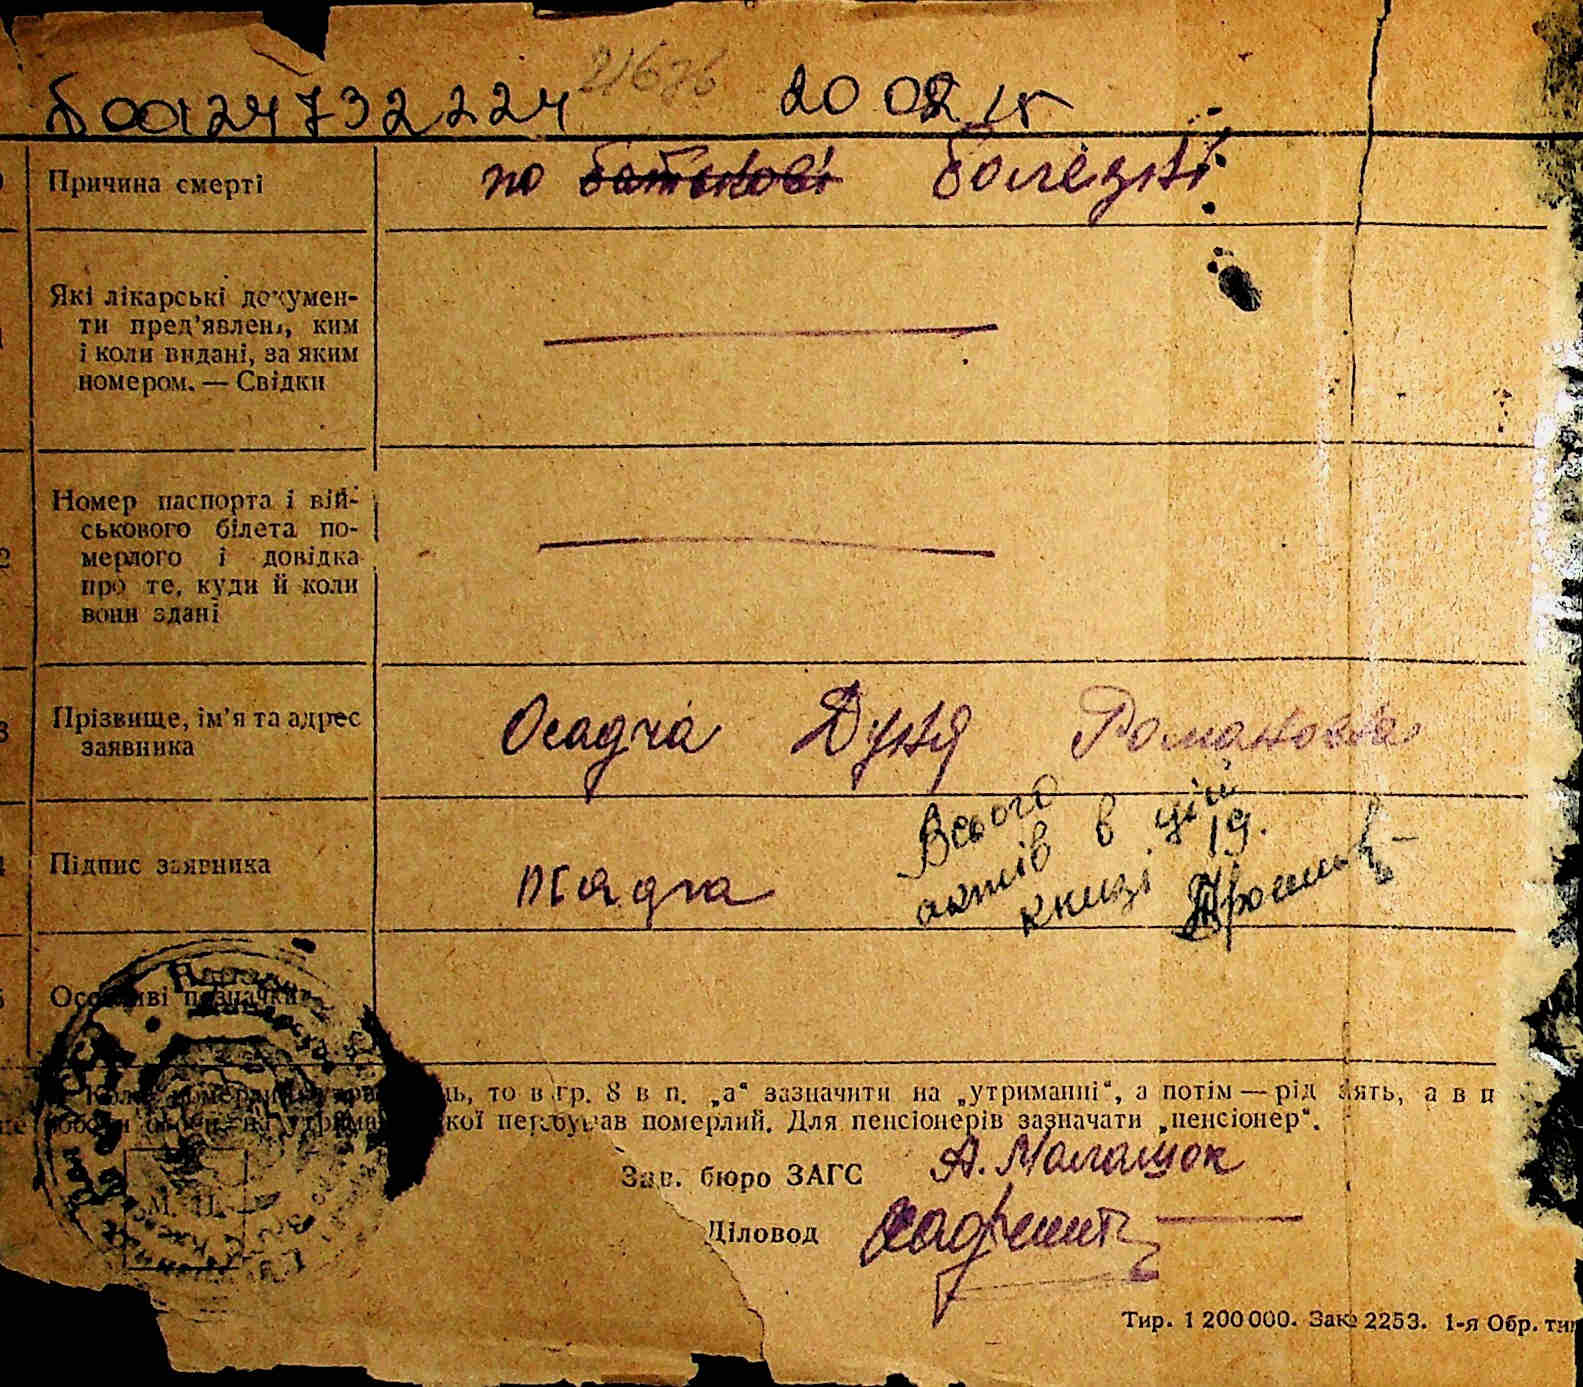 00124732224 21676 20 02 15
Причина смерті
по батькові болезні
Які лікарські докумен-
ти пред’явлені, ким
і коли видані, за яким
номером. — Свідки
Номер паспорта і вій-
ськового білета по-
мерлого і довідка
про те, куди й коли
вони здані
2
3 Прізвище, ім’я та адрес
заявника
Осадча Дуня Романовна
Підпис заявника
Осадча
Всього
актів в цій
книзі 19.
Особливі позначки
ць, то в гр. 8 в п. „а“ зазначити на „утриманні“, а потім — рід занять, а в п
кої перебував померлий. Для пенсіонерів зазначати „пенсіонер“.
Зав. бюро ЗАГС А. Малашок
М. П.
Діловод
Тир. 1 200 000. Зак. 2253. 1-я Обр. тип